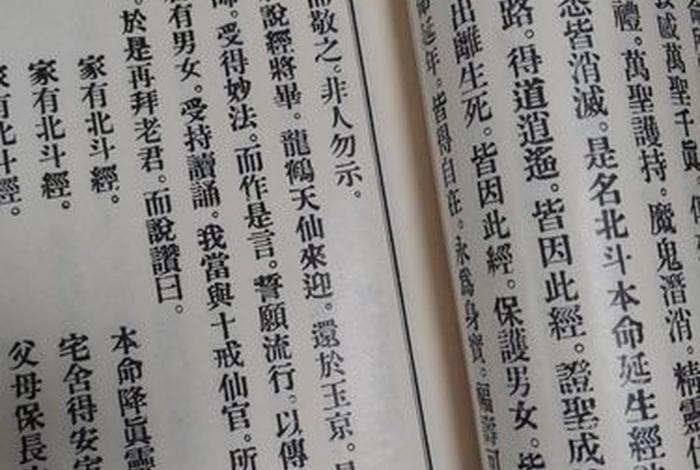 感萬聖千眞
禮。萬聖護持。魔鬼潛消。精靈
悉皆消滅。是名北斗本命延生經
路。得道逍遙。皆因此經。證聖成
出離生死。皆因此經。保護男女。皆
延年。皆得自在。永爲身寶。福壽可
而敬之。非人勿示。
說經將畢。龍鶴天仙來迎。還於玉京。是
師。受得妙法。而作是言。誓願流行。以傳
有男女。受持讀誦。我當與十戒仙官。所
於是再拜老君。而說讚曰。
家有北斗經。 本命降眞靈
家有北斗經。 宅舍得安寧
家有北斗經。 父母保長